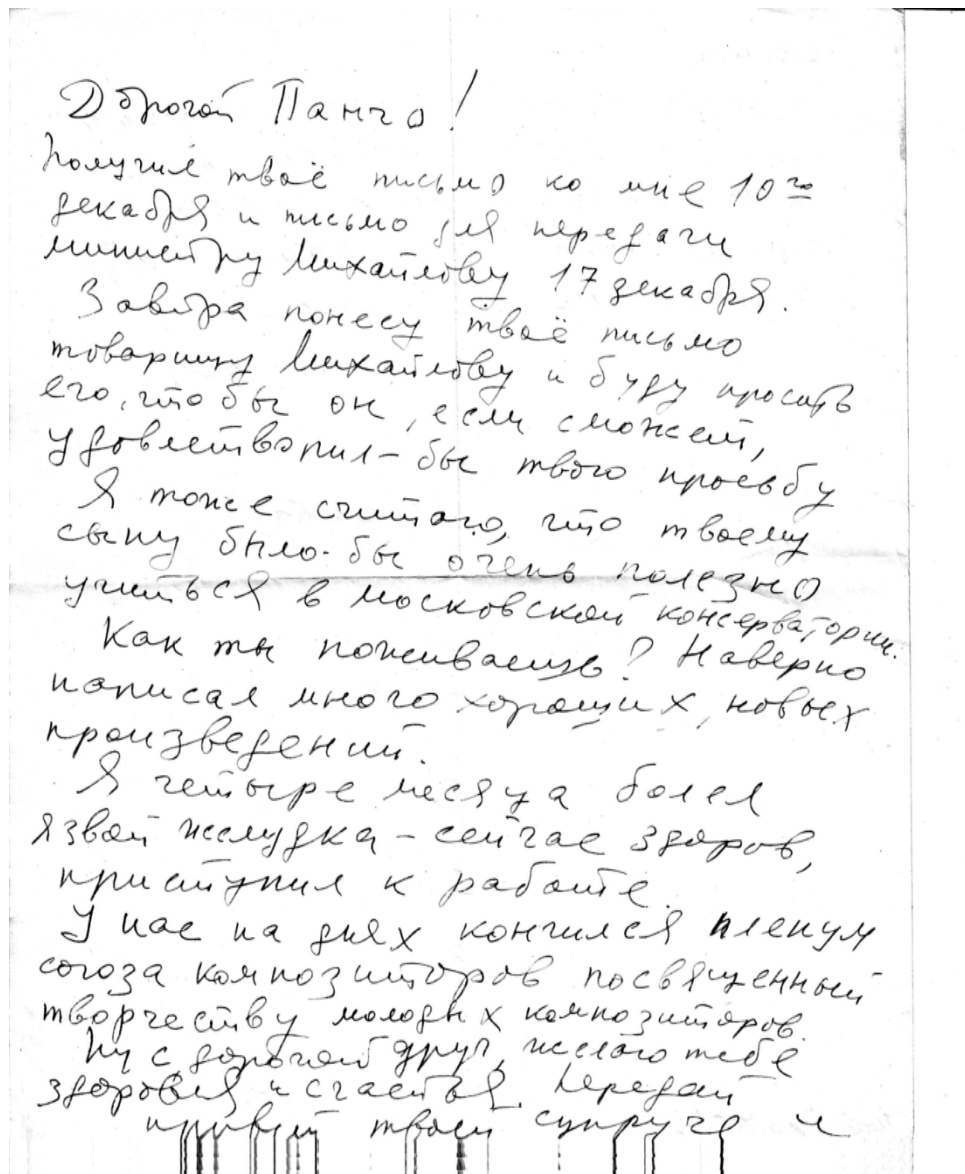 Дорогой Панчо!
Получил твоё письмо ко мне 10го
декабря и письмо для передачи
министру Михайлову 17 декабря.
Завтра понесу твоё письмо
товарищу Михайлову и буду просить
его, что бы он, если сможет,
удовлетворил-бы твою просьбу
Я тоже считаю, что твоему
сыну было-бы очень полезно
учиться в московской консерватории.
Как ты поживаешь? Наверно
написал много хороших, новых
произведений.
Я четыре месяца болел
язвой желудка - сейчас здоров,
приступил к работе.
У нас на днях кончился пленум
союза композиторов посвященный
творчеству молодых композиторов.
Ну с, дорогой друг, желаю тебе
здоровья и счастья. Передай
привет твоей супруге и